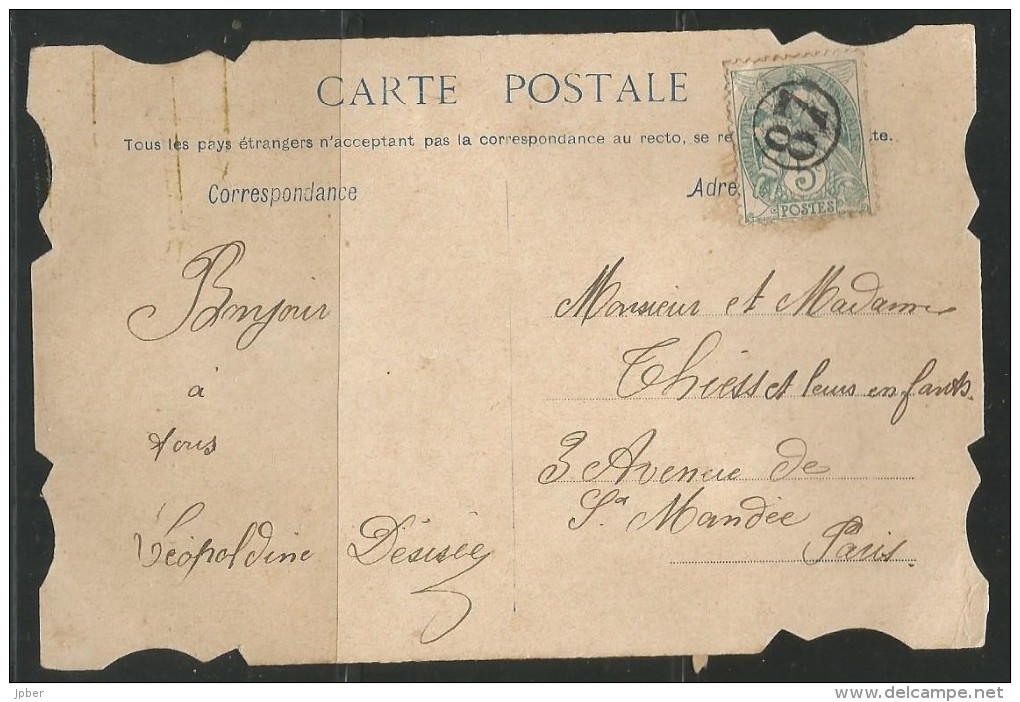 CARTE POSTALE
Tous les pays étrangers n'acceptant pas la correspondance au recto, se re te.
Correspondance
Adre
87
5
POSTES
Bonjour
à
tous
Léopoldine Désirée
Monsieur et Madame
Thiess et leurs enfants.
3 Avenue de
St Mandée
Paris.
jpber
www.delcampe.net